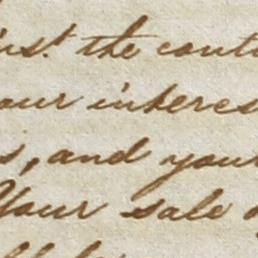 inst. the cont
our interes
s, and your
Your sale o